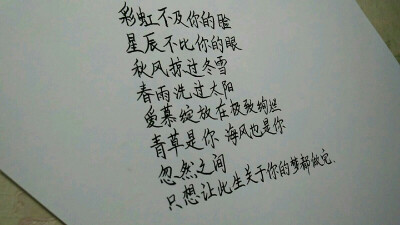 彩虹不及你的脸
星辰不比你的眼
秋风掠过冬雪
春雨洗过太阳
爱慕绽放在极致绚烂
青草是你 海风也是你
忽然之间
只想让此生关于你的梦都做完.